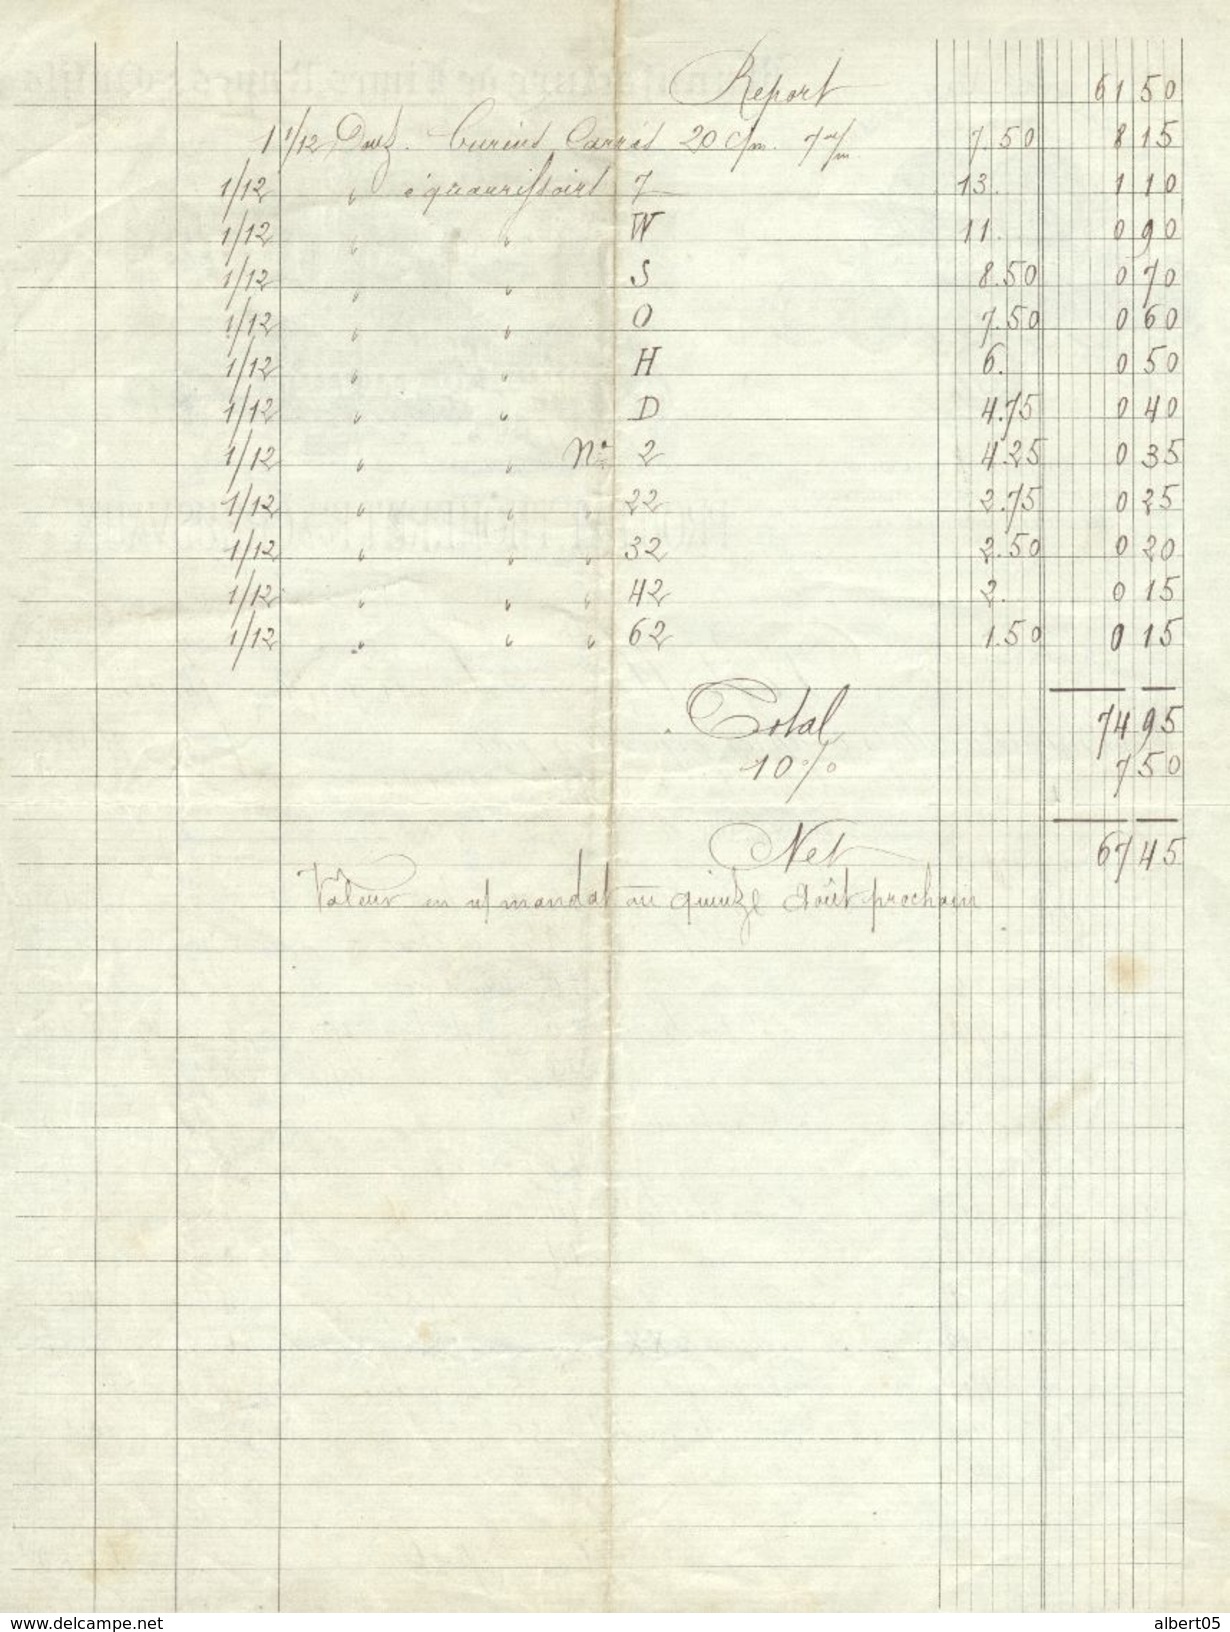 Report 61 50
1 1/12 Douz. burins Carrés 20 c/m. 7 m/m 7.50 8 15
1/12 " équarrissoirs Z 13. 1 10
1/12 " " W 11. 0 90
1/12 " " S 8.50 0 70
1/12 " " O 7.50 0 60
1/12 " " H 6. 0 50
1/12 " " D 4.75 0 40
1/12 " " No 2 4.25 0 35
1/12 " " " 22 2.75 0 25
1/12 " " " 32 2.50 0 20
1/12 " " " 42 2. 0 15
1/12 " " " 62 1.50 0 15
Total 74 95
10 % 7 50
Net 67 45
Valeur en n/ mandat au quinze Août prochain
www.delcampe.net albert05